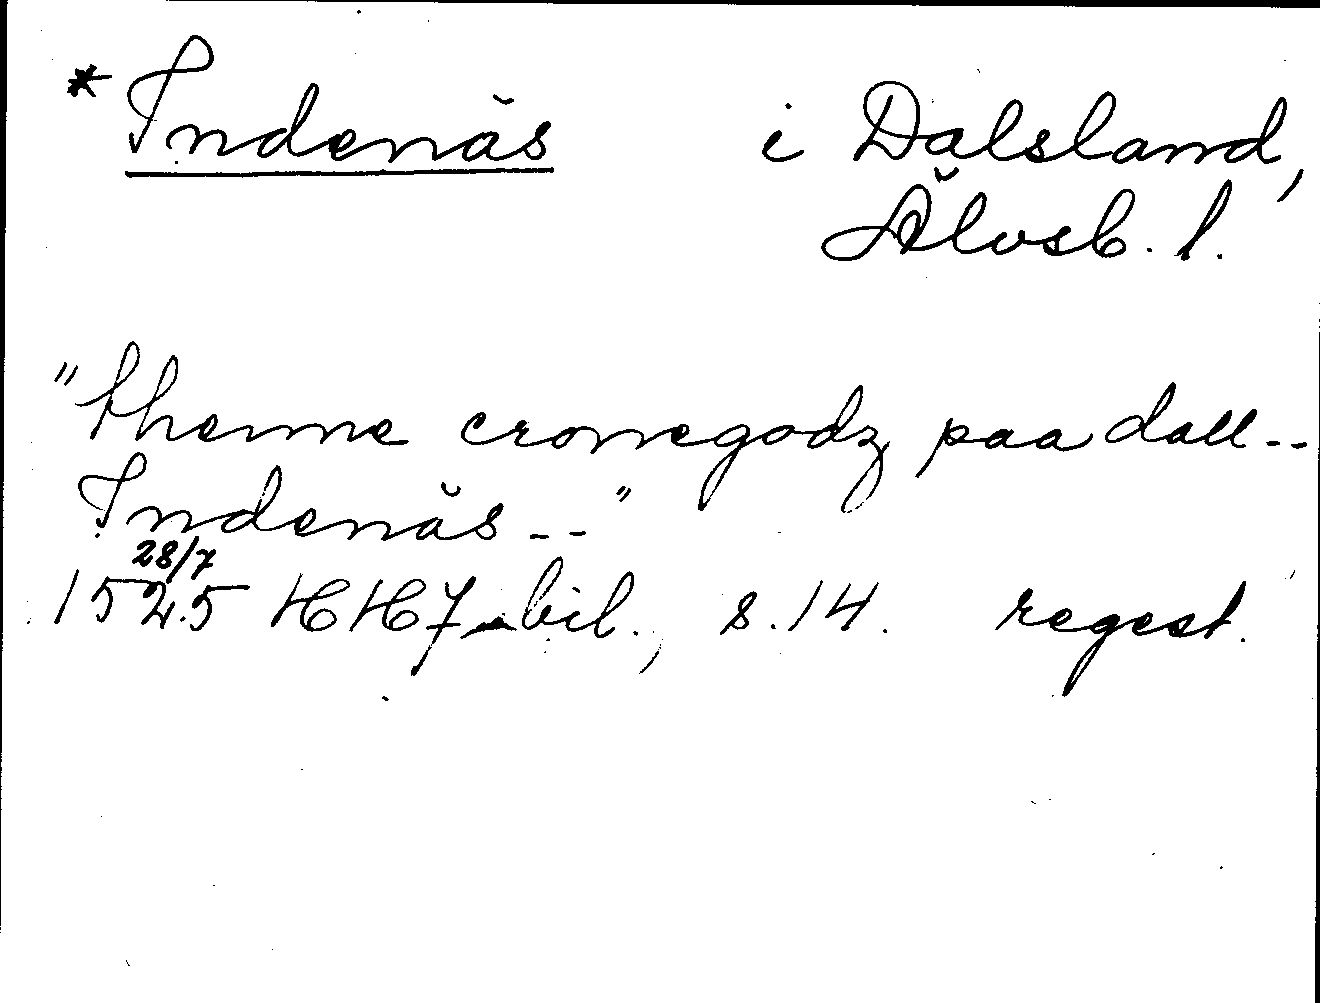 * Indenäs i Dalsland,
Älvsb. l.
"thenne cronegodz paa dall--
Indenäs--"
28/7
1525 HH 7 bil., s. 14. regest.